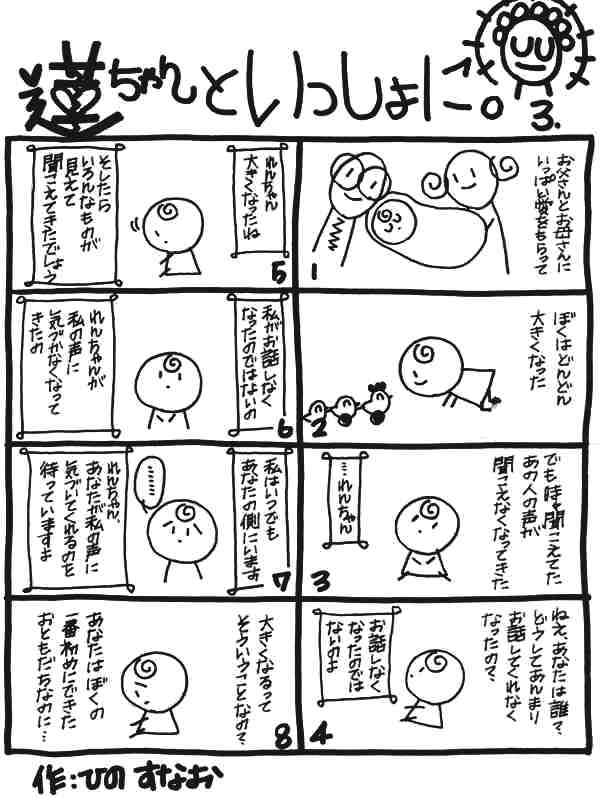 蓮ちゃんといっしょに!。
3.
お父さんとお母さんに
いっぱい愛をもらって
1
ぼくはどんどん
大きくなった
2
でも時々聞こえてた
あの人の声が
聞こえなくなってきた
…れんちゃん
3
ねえ、あなたは誰?
どうしてあんまり
お話してくれなく
なったの?
お話しなく
なったのでは
ないのよ
4
れんちゃん
大きくなったね
そしたら
いろんなものが
見えて
聞こえてきたでしょう
5
私がお話しなく
なったのではないの
れんちゃんが
私の声に
気づかなくなって
きたの
6
私はいつでも
あなたの側にいます
…………
れんちゃん、
あなたが私の声に
気づいてくれるのを
待っていますよ
7
大きくなるって
そういうことなの?
あなたはぼくの
一番初めにできた
おともだちなのに…
8
作:ひの すなお